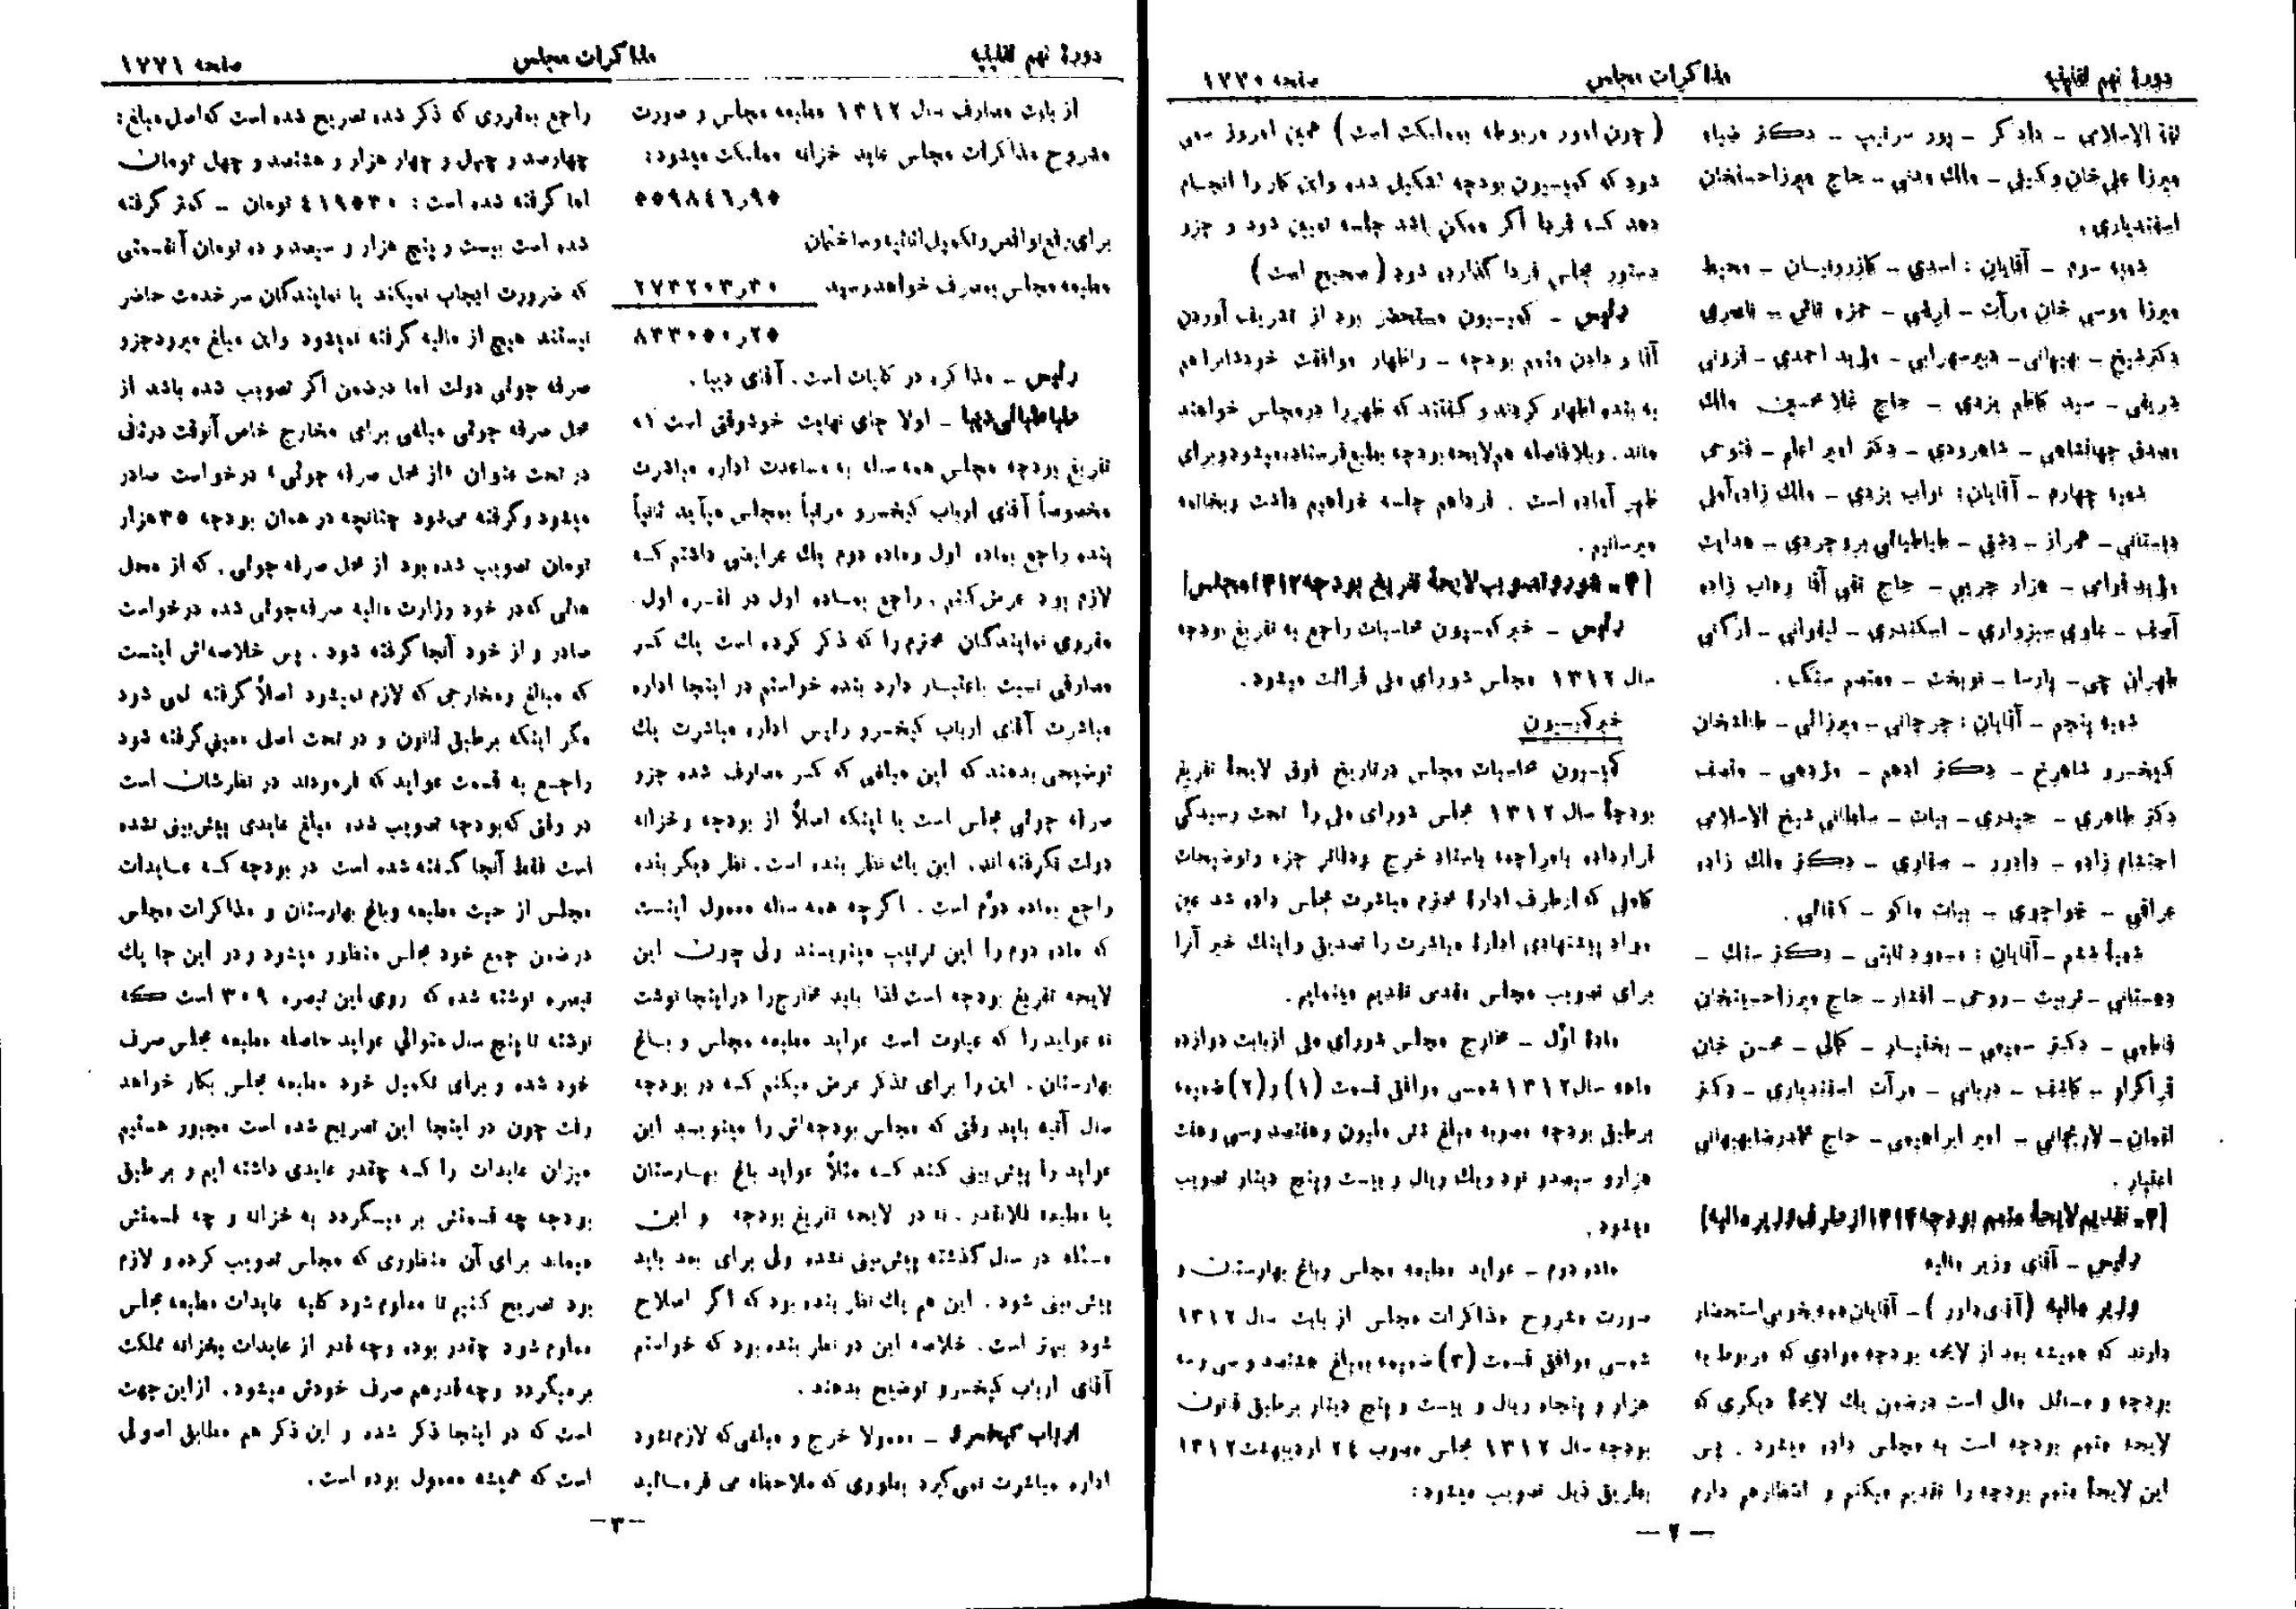 دورهٔ نهم تقنینیه
مذاکرات مجلس
صفحه ۱۷۷۰
ثقة الاسلامی - دادکر - پور سرتیپ - دکتر ضیاء
میرزا علی خان وکیلی - ملک مدنی - حاج میرزا حسنخان
اسفندیاری.
شعبه سوم - آقایان: اسدی - کازرونیان - محیط
میرزا موسی خان مرآت - اریقی - حمزه تائی - ناصری
دکتر شیخ - بهبهانی - دبیر سهرابی - مؤید احمدی - قزونی
شریفی - سید کاظم یزدی - حاج غلامحسین ملک
مصدق جهانشاهی - شاهرودی - دکتر امیر اعلم - فتوحی
شعبه چهارم - آقایان: نواب یزدی - ملک زاده آملی
دبستانی - همراز - دشتی - طباطبائی بروجردی - هدایت
مؤید قوامی - هزار جریبی - حاج تقی آقا وهاب زاده
آصف - علوی سبزواری - اسکندری - لیقوانی - ارگانی
طهران چی - پارسا - نوبخت - معتصم سنگ.
شعبه پنجم - آقایان: جرجانی - میرزائی - طالشخان
کیخسرو شاهرخ - دکتر ادهم - مژدهی - منصف
دکتر طاهری - حیدری - بیات - سلطانی شیخ الاسلامی
احتشام زاده - داور - صفاری - دکتر ملک زاده
عراقی - خواجوی - بیات ماکو - کفائی.
شعبهٔ ششم - آقایان: مسعود ثابتی - دکتر سنگ -
دهستانی - تربیت - روحی - افشار - حاج میرزا حسینخان
فاطمی - دکتر سمیعی - بختیار - کمالی - محسن خان
قراگزلو - کاشف - دربانی - مرآت اسفندیاری - دکتر
لقمان - لاریجانی - امیر ابراهیمی - حاج محمدرضا بهبهانی
اعتبار.
[۳- تقدیم لایحهٔ متمم بودجه ۱۳۱۴ از طرف وزیر مالیه]
رئیس - آقای وزیر مالیه
وزیر مالیه (آقای داور) - آقایان همه بخوبی استحضار
دارند که همیشه بعد از لایحه بودجه موادی که مربوط به
بودجه و مسائل مالی است در ضمن یک لایحهٔ دیگری که
لایحه متمم بودجه است به مجلس داده میشود. پس
این لایحهٔ متمم بودجه را تقدیم میکنم و انتظار هم دارم
(چون امور مربوطه بمملکت است) همین امروز سعی
شود که کمیسیون بودجه تشکیل شده و این کار را انجام
دهد که فردا اگر ممکن باشد جلسه تعیین شود و جزو
دستور مجلس فردا گذارده شود (صحیح است)
رئیس - کمیسیون مستحضر بود از تشریف آوردن
آقا و دادن متمم بودجه - و اظهار موافقت خودشانرا هم
به بنده اظهار کردند و گفتند که ظهر را در مجلس خواهند
ماند. و بلافاصله هم لایحه بودجه بطبع فرستاده میشود و برای
ظهر آماده است. فردا هم جلسه خواهیم داشت و بخاتمه
میرسانیم.
[۴- شور و تصویب لایحهٔ تفریغ بودجه ۱۳۱۲ مجلس]
رئیس - خبر کمیسیون محاسبات راجع به تفریغ بودجه
سال ۱۳۱۲ مجلس شورای ملی قرائت میشود.
خبر کمیسیون
کمیسیون محاسبات مجلس در تاریخ فوق لایحهٔ تفریغ
بودجهٔ سال ۱۳۱۲ مجلس شورای ملی را تحت رسیدگی
قرار داده با مراجعه باسناد خرج و دفاتر جزء و توضیحات
کاملی که از طرف ادارهٔ محترم مباشرت مجلس داده شد عین
مواد پیشنهادی ادارهٔ مباشرت را تصدیق و اینک خبر آنرا
برای تصویب مجلس مقدس تقدیم مینمایم.
مادهٔ اوّل - مخارج مجلس شورای ملی از بابت دوازده
ماهه سال ۱۳۱۲ شمسی موافق قسمت (۱) و (۲) ضمیمه
بر طبق بودجه مصوبه مبلغ شش ملیون و هفتصد و سی و هفت
هزار و سیصد و نود و یک ریال و بیست و پنج دینار تصویب
میشود.
ماده دوم - عواید مطبعه مجلس و باغ بهارستان و
صورت مشروح مذاکرات مجلس از بابت سال ۱۳۱۲
شمسی موافق قسمت (۳) ضمیمه بمبلغ هشتصد و سی و سه
هزار و پنجاه ریال و بیست و پنج دینار بر طبق قانون
بودجه سال ۱۳۱۲ مجلس مصوب ۲۴ اردیبهشت ۱۳۱۲
بطریق ذیل تصویب میشود:
- ۲ -
دورهٔ نهم تقنینیه
مذاکرات مجلس
صفحه ۱۷۷۱
از بابت مصارف سال ۱۳۱۲ مطبعه مجلس و صورت
مشروح مذاکرات مجلس عاید خزانه مملکت میشود:
۵۵۹۸۴۶ر۹۵
برای رفع نواقص و تکمیل اثاثیه و ساختمان
مطبعه مجلس بمصرف خواهد رسید ۲۷۳۲۰۳ر۳۰
۸۳۳۰۵۰ر۲۵
رئیس - مذاکره در کلیات است. آقای دیبا.
طباطبائی دیبا - اولا جای نهایت خوشوقتی است که
تفریغ بودجه مجلس همه ساله به مساعدت اداره مباشرت
مخصوصاً آقای ارباب کیخسرو مرتباً بمجلس میآید ثانیاً
بنده راجع بماده اول و ماده دوم یک عرایضی داشتم که
لازم بود عرض کنم. راجع بماده اول در فقره اول.
مقرری نمایندگان محترم را که ذکر کرده است یک کسر
مصارفی نسبت باعتبار دارد بنده خواستم در اینجا اداره
مباشرت آقای ارباب کیخسرو رئیس اداره مباشرت یک
توضیحی بدهند که این مبالغی که کسر مصارف شده جزو
صرفه جوئی مجلس است یا اینکه اصلاً از بودجه و خزانه
دولت نگرفته اند. این یک نظر بنده است. نظر دیگر بنده
راجع بماده دوّم است. اگرچه همه ساله معمول اینست
که ماده دوم را این ترتیب مینویسند ولی چون این
لایحه تفریغ بودجه است لذا باید مخارج را در اینجا نوشت
نه عواید را که عبارت است عواید مطبعه مجلس و باغ
بهارستان. این را برای تذکر عرض میکنم که در بودجه
سال آتیه باید وقتی که مجلس بودجه‌اش را مینویسد این
عواید را پیش بینی کند که مثلاً عواید باغ بهارستان
یا مطبعه فلانقدر. نه در لایحه تفریغ بودجه و این
مسئله در سال گذشته پیش‌بینی نشده ولی برای بعد باید
پیش بینی شود. این هم یک نظر بنده بود که اگر اصلاح
شود بهتر است. خلاصه این دو نظر بنده بود که خواستم
آقای ارباب کیخسرو توضیح بدهند.
ارباب کیخسرو - معمولا خرج و مبلغی که لازم نشود
اداره مباشرت نمی گیرد بطوری که ملاحظه می فرمائید
راجع بمقرری که ذکر شده تصریح شده است که اصل مبلغ:
چهارصد و چهل و چهار هزار و هشتصد و چهل تومان
اما گرفته شده است: ۴۱۹۵۳۰ تومان - کمتر گرفته
شده است بیست و پنج هزار و سیصد و ده تومان آنقسمتی
که ضرورت ایجاب نمیکند یا نمایندگان سر خدمت حاضر
نیستند هیچ از مالیه گرفته نمیشود و این مبلغ میرود جزو
صرفه جوئی دولت اما در ضمن اگر تصویب شده باشد از
محل صرفه جوئی مبلغی برای مخارج خاص آنوقت در ثانی
در تحت عنوان «از محل صرفه جوئی» درخواست صادر
میشود و گرفته می‌شود چنانچه در همان بودجه ۳۵ هزار
تومان تصویب شده بود از محل صرفه جوئی. که از محل
هائی که در خود وزارت مالیه صرفه جوئی شده درخواست
صادر و از خود آنجا گرفته شود. پس خلاصه‌اش اینست
که مبالغ و مخارجی که لازم نمیشود اصلاً گرفته نمی شود
مگر اینکه بر طبق قانون و در تحت اصل معینی گرفته شود
راجع به قسمت عواید که فرمودند در نظرشان است
در وقتی که بودجه تصویب شده مبلغ عایدی پیش بینی نشده
است فقط آنجا گفته شده است در بودجه که عایدات
مجلس از حیث مطبعه و باغ بهارستان و مذاکرات مجلس
در ضمن جمع خود مجلس منظور میشود و در این جا یک
تبصره نوشته شده که روی این تبصره ۳۰۹ است که
نوشته تا پنج سال متوالی عواید حاصله مطبعه مجلس صرف
خود شده و برای تکمیل خود مطبعه مجلس بکار خواهد
رفت چون در اینجا این تصریح شده است مجبور هستیم
میزان عایدات را که چقدر عایدی داشته ایم و بر طبق
بودجه چه قسمتش بر میگردد به خزانه و چه قسمتش
میماند برای آن منظوری که مجلس تصویب کرده و لازم
بود تصریح کنیم تا معلوم شود کلیه عایدات مطبعه مجلس
معلوم شود چقدر بوده و چه قدر از عایدات بخزانه مملکت
برمیگردد و چه قدر هم صرف خودش میشود. از این جهت
است که در اینجا ذکر شده و این ذکر هم مطابق اصولی
است که همیشه معمول بوده است.
-۳-